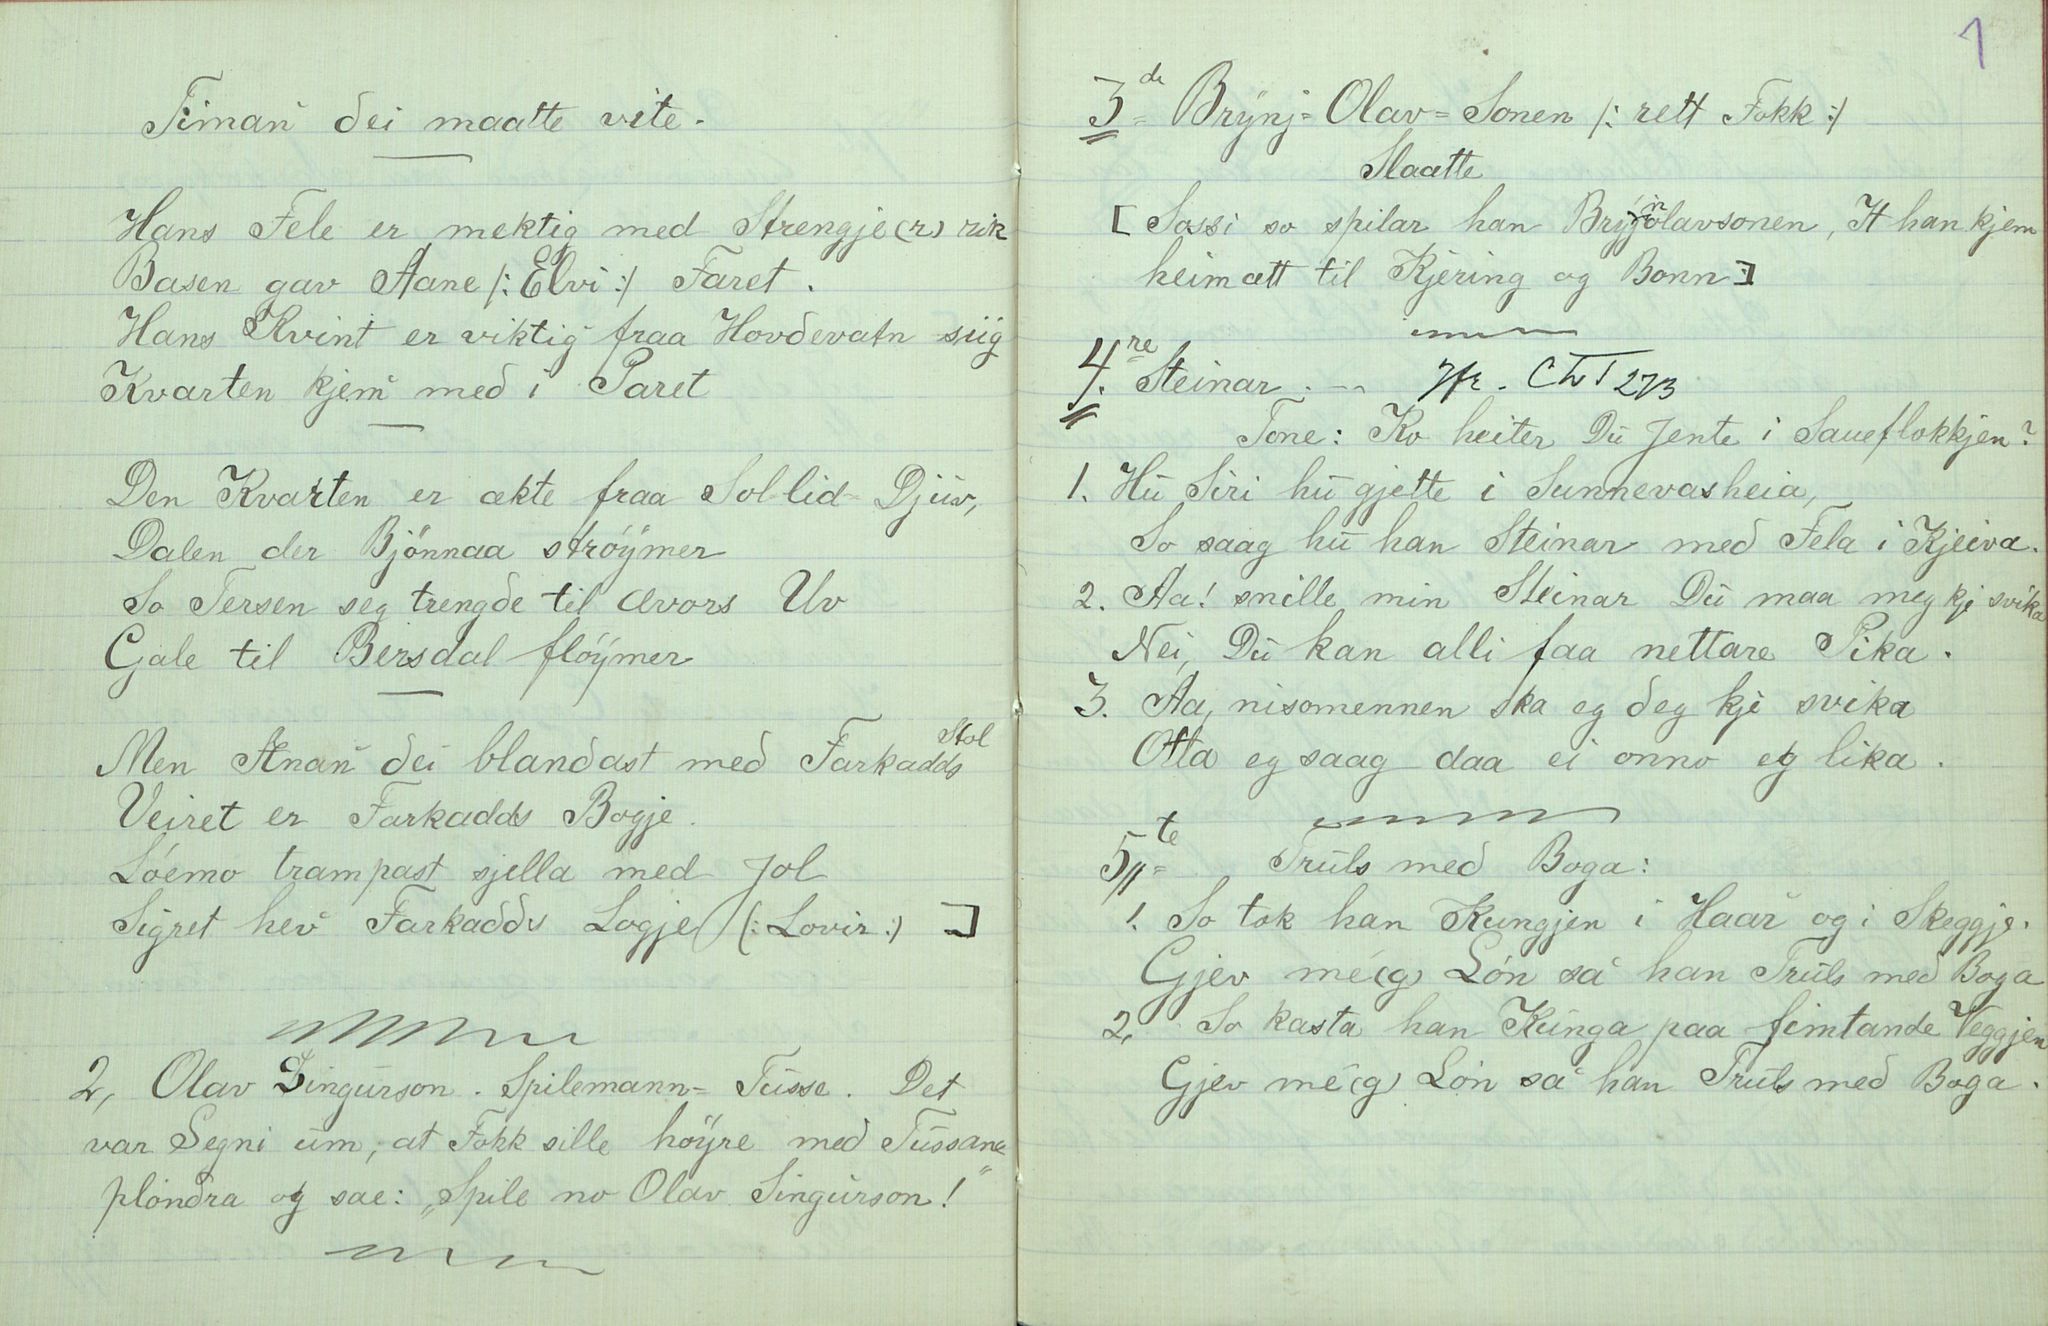 Timan dei maatte vite.
Hans Fele er mektig med Strengje(r) rik
Basen gav Aane /: Elvi :/ Faret.
Hans Kvint er viktig fraa Hovdevatn siig
Kvarten kjem med i Paret
Den Kvarten er ækte fraa Sollid-Djuv,
Dalen der Bjönnaa ströymer
So Tersen seg trengde til Ævors Uv
Gale til Bersdal flöymer
Men Anan dei blandast med Farkadds Stol
Veiret er Farkadds Bogje.
Lóemo trampast sjella med Jol
Sigret hev Farkadds Logje (: Lovir :) ]
2, Olav Singurson. Spilemann= Tusse. Det
var Segni um, at Fokk sille höyre med Tussane
plondra og sae: „Spile no Olav Singurson!"
1
3de Brynj= Olav= Sonen /: rett Fokk :/
Slaatte
[ Sassi so spilar han Brynjolavsonen, It han kjem
heimatt til Kjering og Bonn ]
4.re Steinar. — Jfr. ChT 273
Tone: Ko heiter Du Jente i Saueflokkjen?
1. Hu Siri hu gjette i Sunnevasheia,
So saag hu han Steinar med Fela i Kjeiva.
2. Aa! snille min Steinar Du maa meg kje svika
Nei, Du kan alli faa nettare Pika.
3. Aa, nisomennen ska eg deg kje svika
Otta eg saag daa ei onno eg lika.
5te Truls med Boga:
1. So tok han Kungjen i Haar og i Skeggje.
Gjev mé(g) Lón sa han Truls med Boga
2, So kasta han Kunga paa fimtande Veggjen
Gjev mé(g) Lón sa han Truls med Boga.